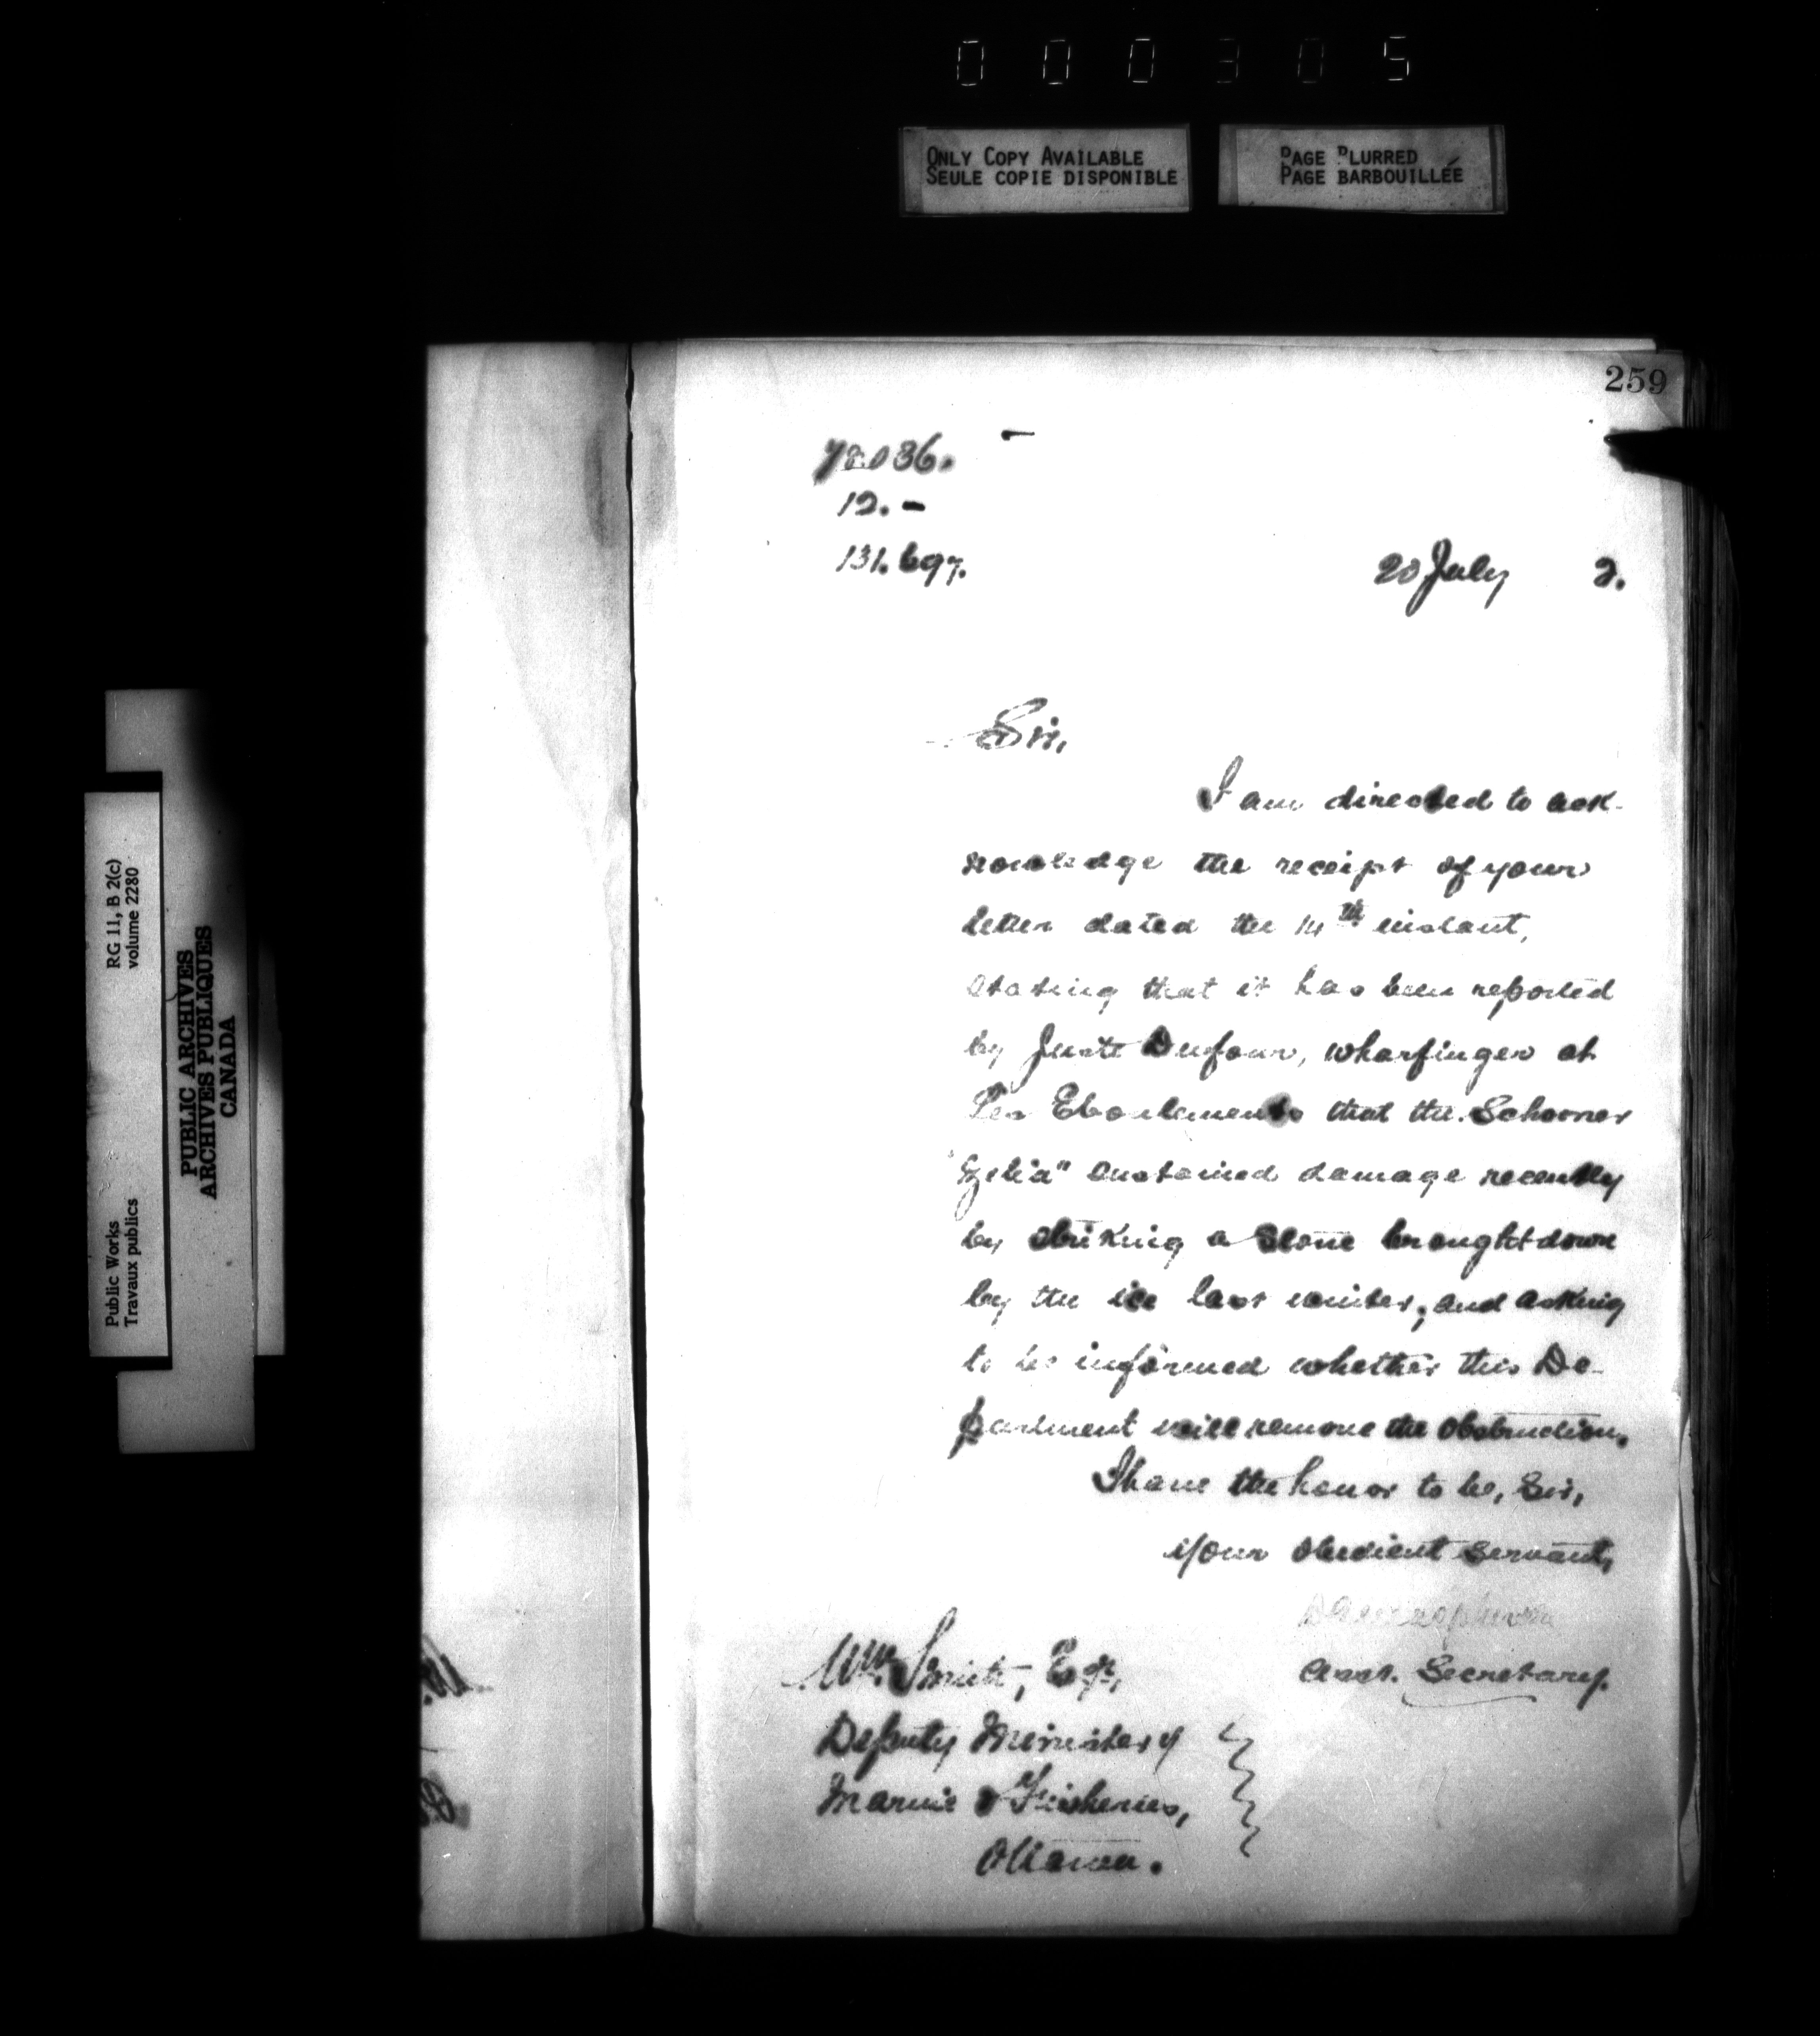 000305
ONLY COPY AVAILABLE
SEULE COPIE DISPONIBLE
PAGE BLURRED
PAGE BARBOUILLÉE
RG 11, B 2(c)
volume 2280
Public Works
Travaux publics
PUBLIC ARCHIVES
ARCHIVES PUBLIQUES
CANADA
259
78036.
12. -
131.697.
20 July 2.
Sir,
I am directed to ack-
nowledge the receipt of your
letter dated the 14th instant,
stating that it has been reported
by Juste Dufour, wharfinger at
Les Eboulements that the Schooner
"Zelia" sustained damage recently
by striking a stone brought down
by the ice last winter, and asking
to be informed whether this De-
partment will remove the obstruction.
I have the honor to be, Sir,
Your obedient servant,
Asst. Secretary.
Wm. Smith, Esq.,
Deputy Minister of
Marine & Fisheries,
Ottawa.